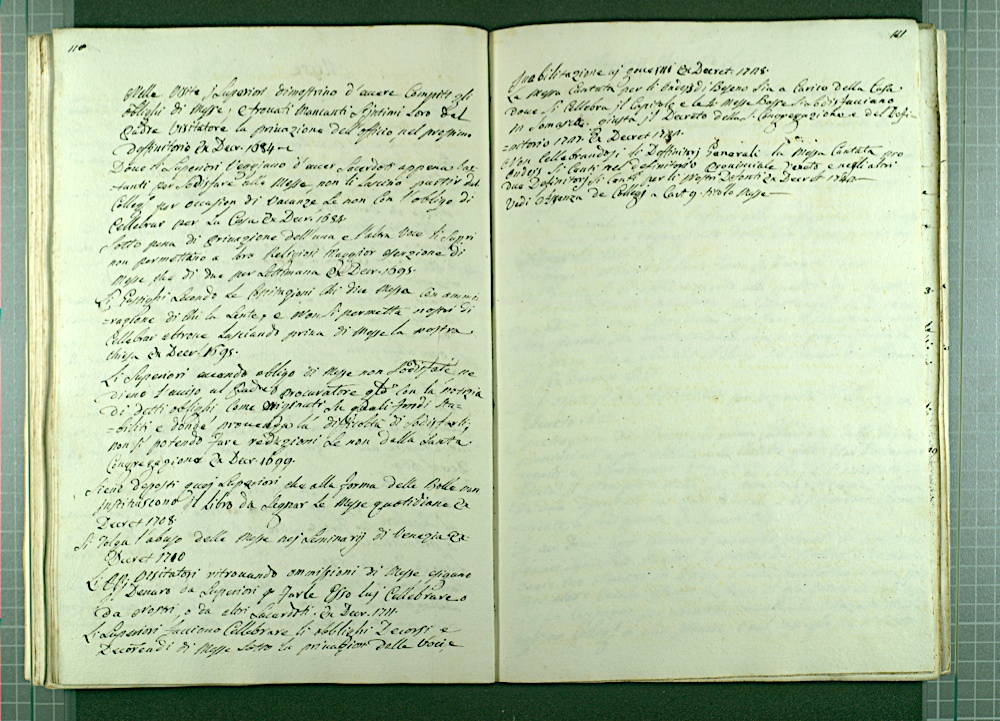 110
Nelle Visite i Superiori dimostrino d'avere compito gli
oblighi di Messe, e trovati Mancanti s'intimi loro dal
Padre Visitatore la privazione dell'officio nel prossimo
deffinitorio Ex Decr. 1684
Dove li Superiori veggiano d'aver Sacerdoti appena bas-
tanti per sodisfare alle Messe non li lascino partir dal
Colleg.o per occasion di vacanze se non con l'obligo di
Cellebrar per la Casa Ex Decr. 1684
Sotto pena di privazione dell'una e l'altra Voce li Supri
non permettano a loro Religiosi Maggior esenzione di
Messe che di due per settimana Ex Decr. 1695
Si Castighi secondo le Constituzioni chi dice Messa con ammi-
=razione di chi la sente, e non si permetta nostri di
Cellebrar altrove lasciando priva di Messe la nostra
chiesa Ex Decr. 1695.
Li Superiori avendo obligo di Messe non sodisfate ne
dieno l'aviso al Padre Procuratore con la notizia
di detti oblighi come originati, su quali fondi sta-
=biliti e donde proceda la dificoltà di sodisfarli,
non si potendo fare reduzioni se non dalla Santa
Congregazione Ex Decr. 1699.
Siene Deposti quei Superiori che alla forma delle Bolle non
instituiscono il Libro da segnar le Messe quotidiane Ex
Decret 1708
Si Tolga l'abuso delle Messe nei Seminarij di Venezia Ex
Decret 1710
Li PP. Visitatori ritrovando ommissioni di Messe esigano
il Denaro da Superiori p farle Esso lui Cellebrare o
da nostri, o da altri Sacerdoti. Ex Decr. 1711.
Li Superiori faccino Cellebrare li oblighi Decorsi e
Decorendi di Messe sotto la privazion della Voce, e
111
Inabilitazione ai governi Ex Decret 1718.
La Messa Cantata per li di Beseno sia a Carico della Casa
dove si Cellebra il Capitolo e le Messe Basse sia
In Somasca, giusta il Decreto della S. Congregazione e del Defi-
=nitorio Ex Decret
Non Cellebrandosi li Deffinitorj Generali la Messa Cantata pro
si Canti nel Definitorio Provinciale Veneto e negli altri
due Definitorij si Canti per li nostri Defonti Ex Decret
Vedi de Collegi a Cart. 9 titolo Messe